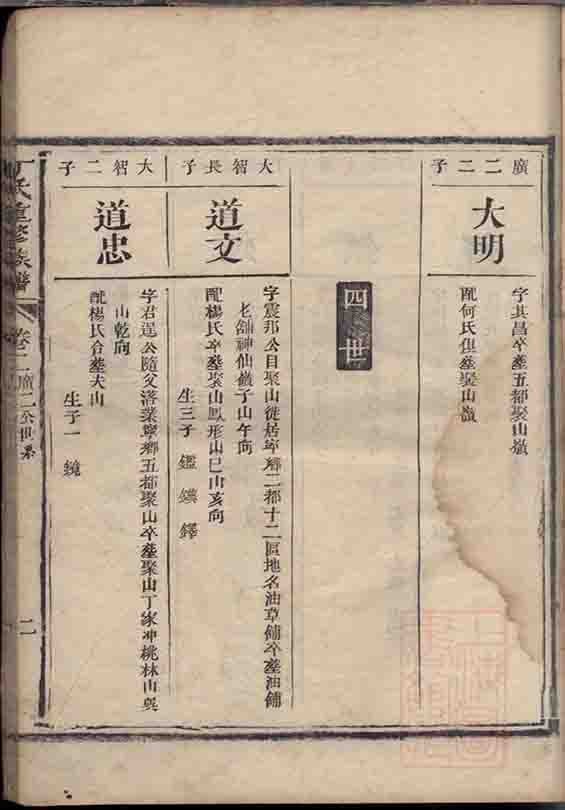 廣二二子
大明
字其昌卒塟五都聚山嶺
配何氏俱塟聚山嶺
四世
大智長子
道文
字震邦公自聚山徙居寧鄉二都十二區地名油草鋪卒塟油鋪
老鋪神仙嶺子山午向
配楊氏卒塟聚山鳳形山巳山亥向
生三子 鑑 鐄 鐸
大智二子
道忠
字君選公隨父落業寧鄉五都聚山卒塟聚山丁家冲桃林山巽
山乾向
配楊氏合塟夫山
生子一 鏡
丁氏重修族譜
卷二
廣二公世系
二